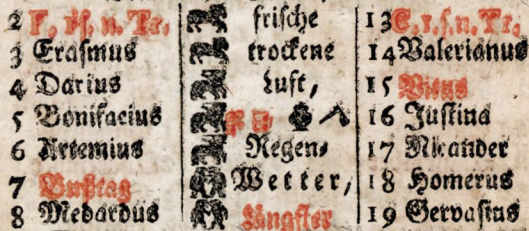 2 F. 1. f. n. Tr. frische 13 E. 1. f. n. Tr.
3 Erasmus trockene 14 Valerianus
4 Darius Luft, 15 Vitus
5 Bonifacius 16 Justina
6 Artemius Regen- 17 Nicander
7 Bußtag Wetter, 18 Homerus
8 Medardus längster 19 Gervasius